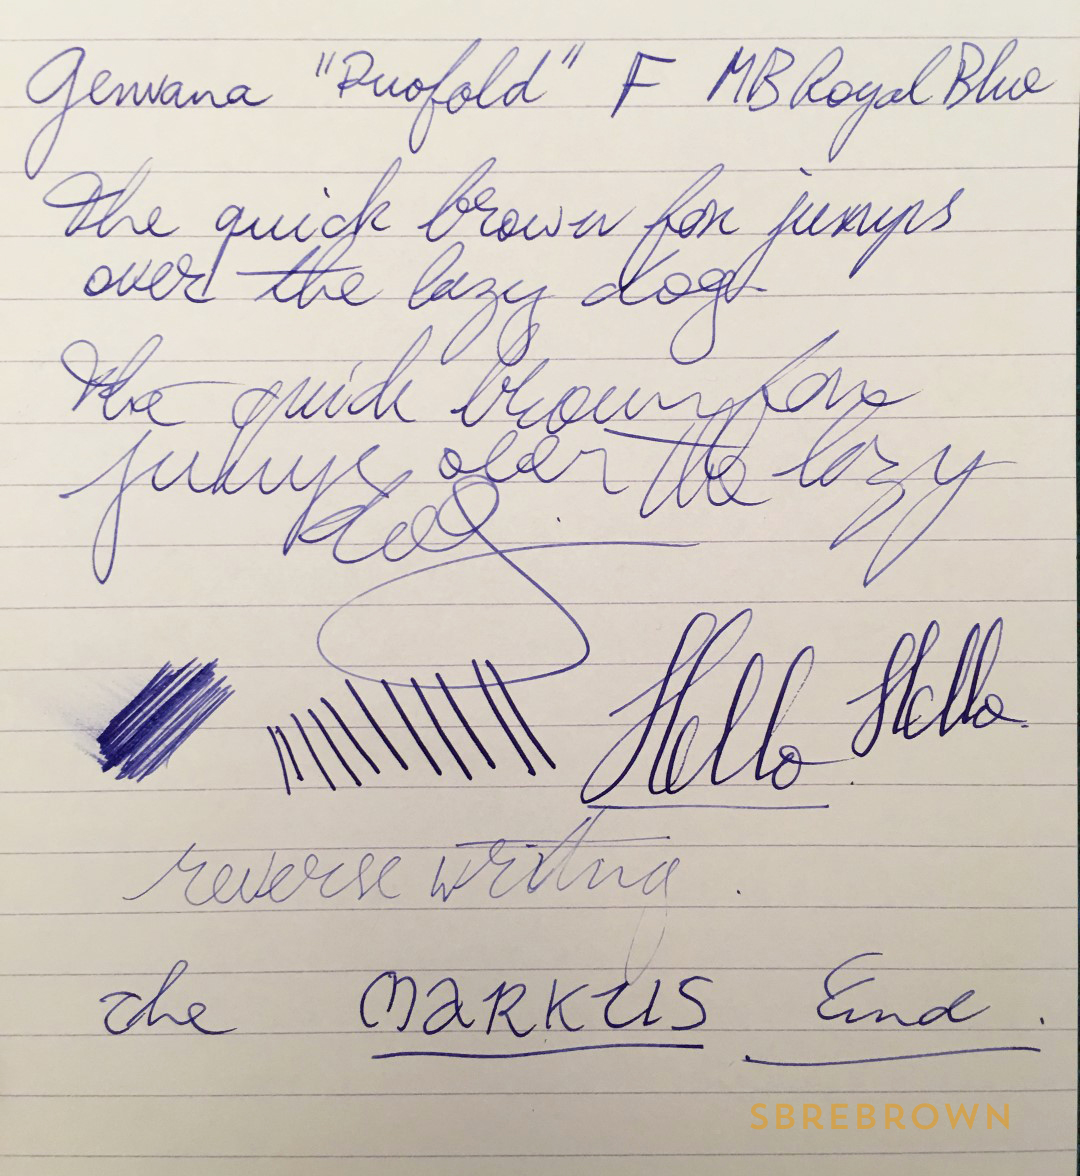 Genvana "Duofold" F MB Royal Blue
The quick brown fox jumps
over the lazy dog.
The quick brown fox
jumps over the lazy
dog.
Hello Hello.
reverse writing.
The MARKUS End.
SBREBROWN